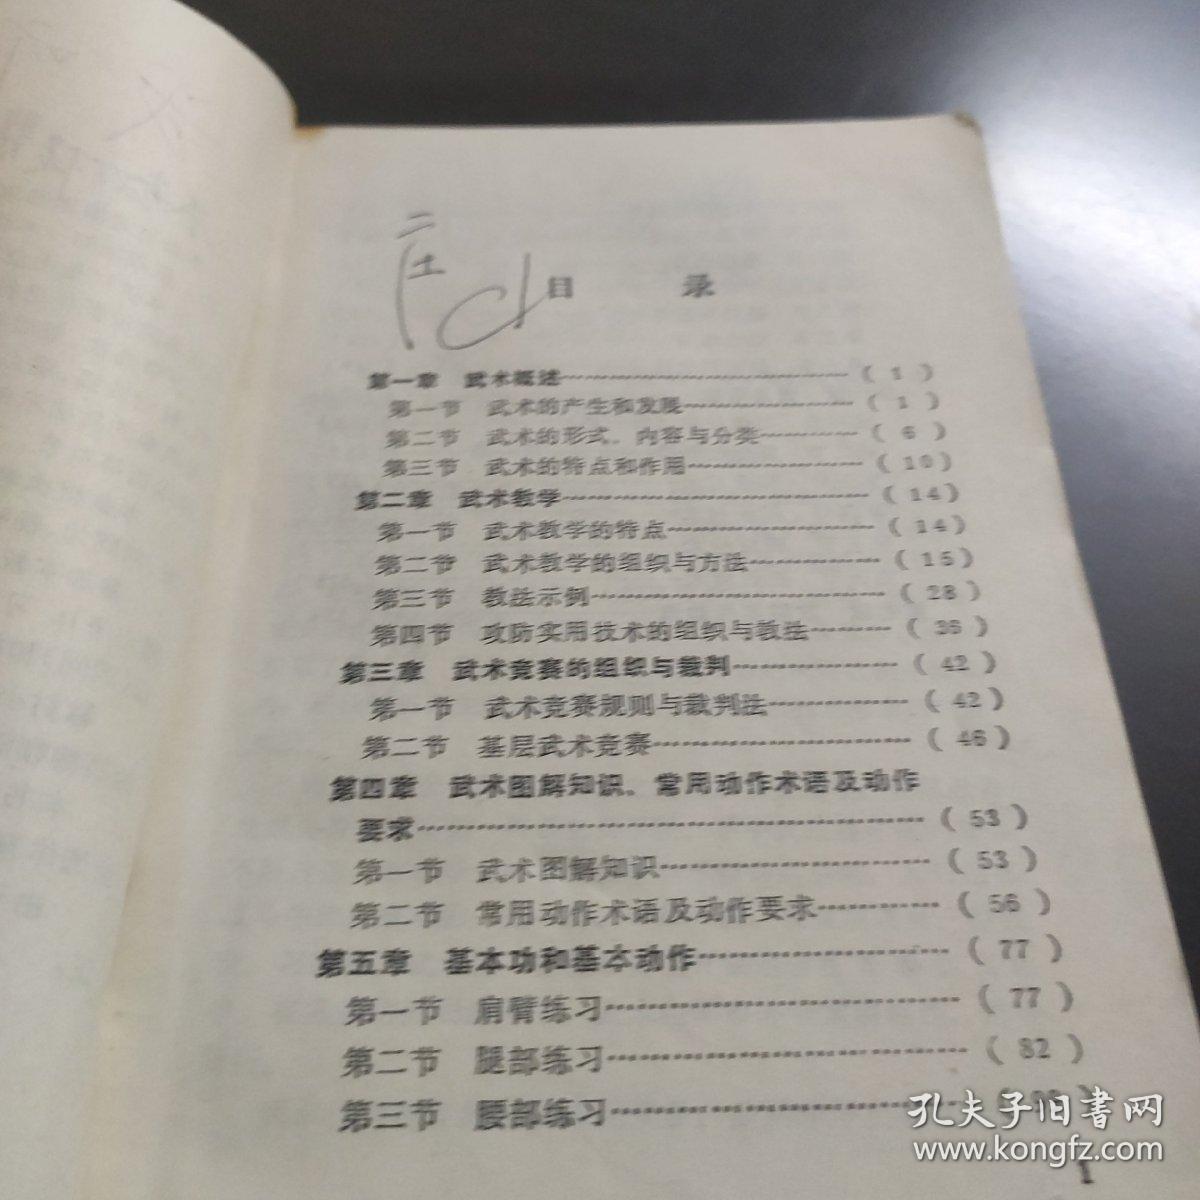 目 录
第一章 武术概述……………………………( 1 )
第一节 武术的产生和发展………………( 1 )
第二节 武术的形式、内容与分类…………( 6 )
第三节 武术的特点和作用………………( 10 )
第二章 武术教学……………………………( 14 )
第一节 武术教学的特点…………………( 14 )
第二节 武术教学的组织与方法…………( 15 )
第三节 教法示例…………………………( 28 )
第四节 攻防实用技术的组织与教法………( 36 )
第三章 武术竞赛的组织与裁判……………( 42 )
第一节 武术竞赛规则与裁判法…………( 42 )
第二节 基层武术竞赛……………………( 46 )
第四章 武术图解知识、常用动作术语及动作
要求…………………………………………( 53 )
第一节 武术图解知识……………………( 53 )
第二节 常用动作术语及动作要求…………( 56 )
第五章 基本功和基本动作…………………( 77 )
第一节 肩臂练习…………………………( 77 )
第二节 腿部练习…………………………( 82 )
第三节 腰部练习…………………………
1
孔夫子旧書网
www.kongfz.com